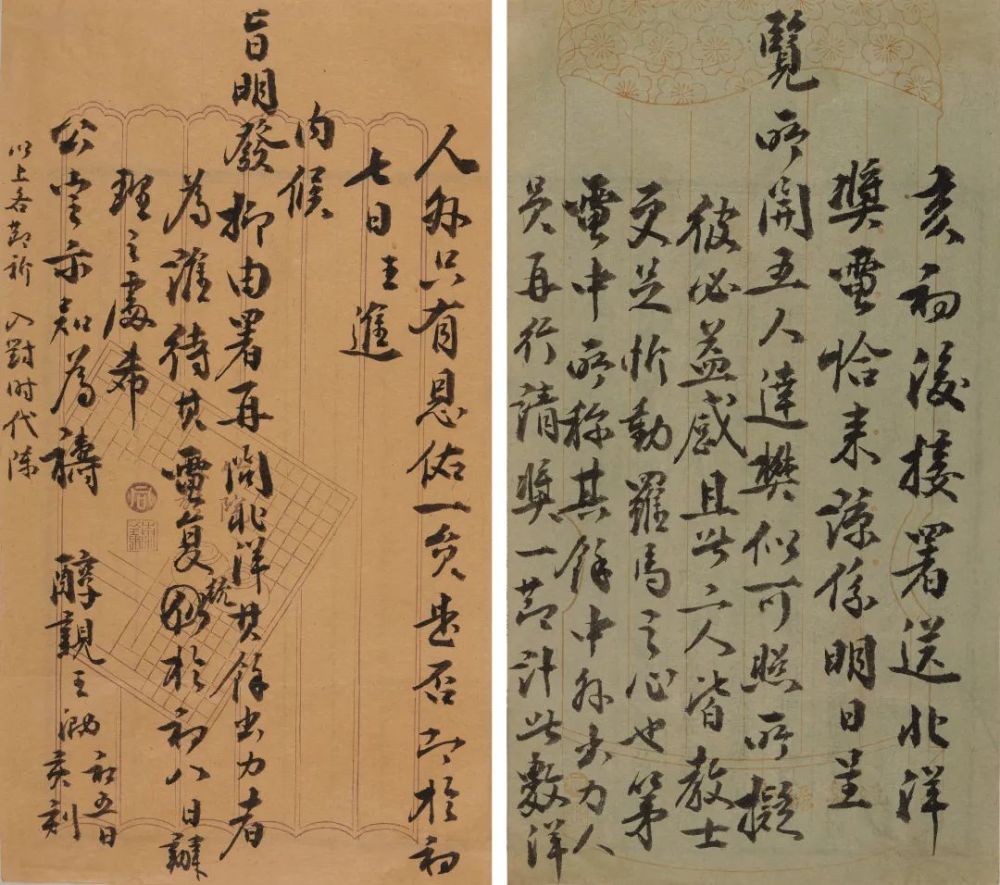 亥初後接署送北洋
獎電恰来諒係明日呈
覽所開五人達樊似可照所擬
彼必益感且此二人皆教士
更足忻動羅馬之心也第
電中所称其餘中外出力人
員再行請獎一節計此數洋
人外只有恩佑一員是否亦於初
七日呈進
内候
旨明發抑由署再問北洋其餘出力者
為誰待其電复統於初八日辦
理之處希
公定示知為禱 醇親王泐 初五日亥刻
以上各節祈入對时代陈